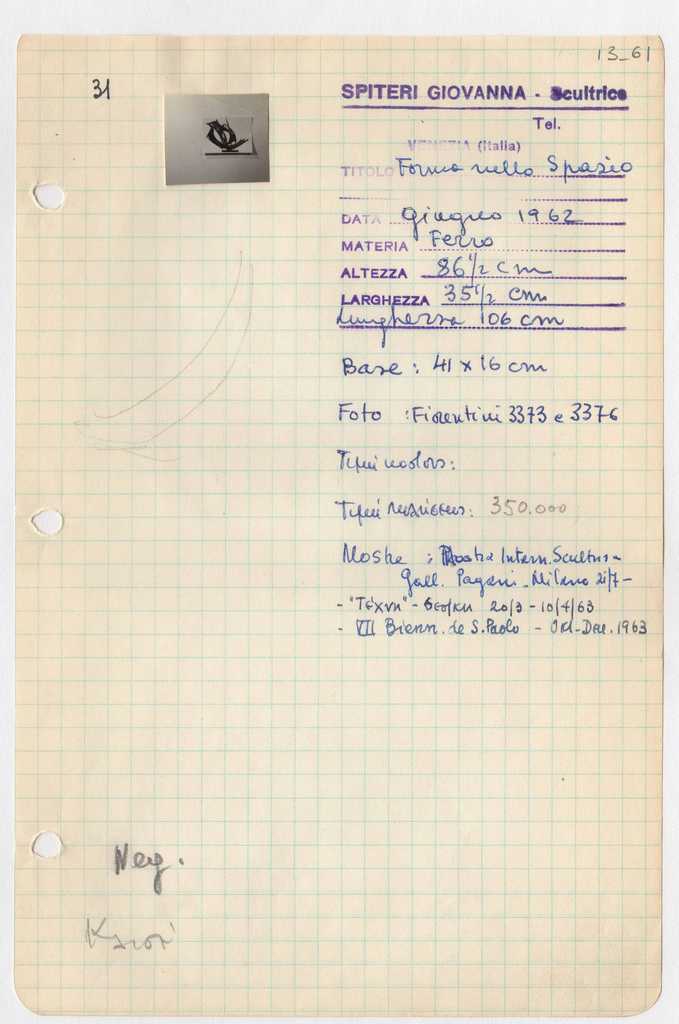 13-61
31
SPITERI GIOVANNA - Scultrice
Tel.
VENEZIA (Italia)
TITOLO Forma nello Spazio
DATA giugno 1962
MATERIA Ferro
ALTEZZA 86 1/2 cm
LARGHEZZA 35 1/2 cm
Lunghezza 106 cm
Base : 41 x 16 cm
Foto : Fiorentini 3373 e 3376
Τιμή
Τιμή 350.000
Mostre : Mostra Intern. Scultura
Gall. Pagani - Milano 21/7 -
- "Τέχνη" - Θεσ/κη 20/3 - 10/4/63
- VII Bienn. de S. Paolo - Okt-Dec. 1963
Neg.